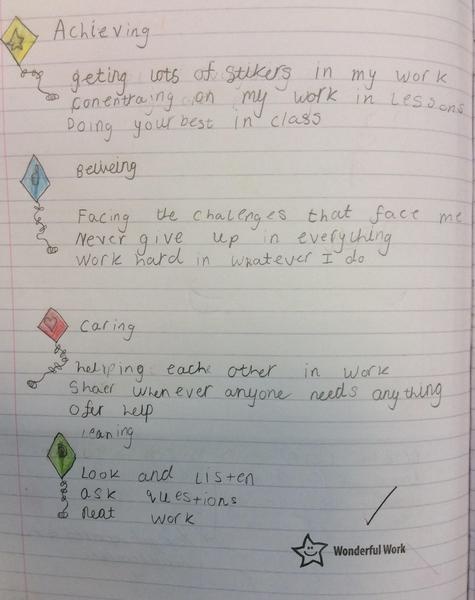 Achieving
geting lots of stikers in my work
conentraing on my work in lessons
Doing your best in class
Belveing
Facing the challenges that face me
Never give up in everything
work hard in whatever I do
Caring
helping each other in work
Shaer whenever anyone needs anything
Ofer help
leaning
Look and Listen
ask questions
neat work
Wonderful Work